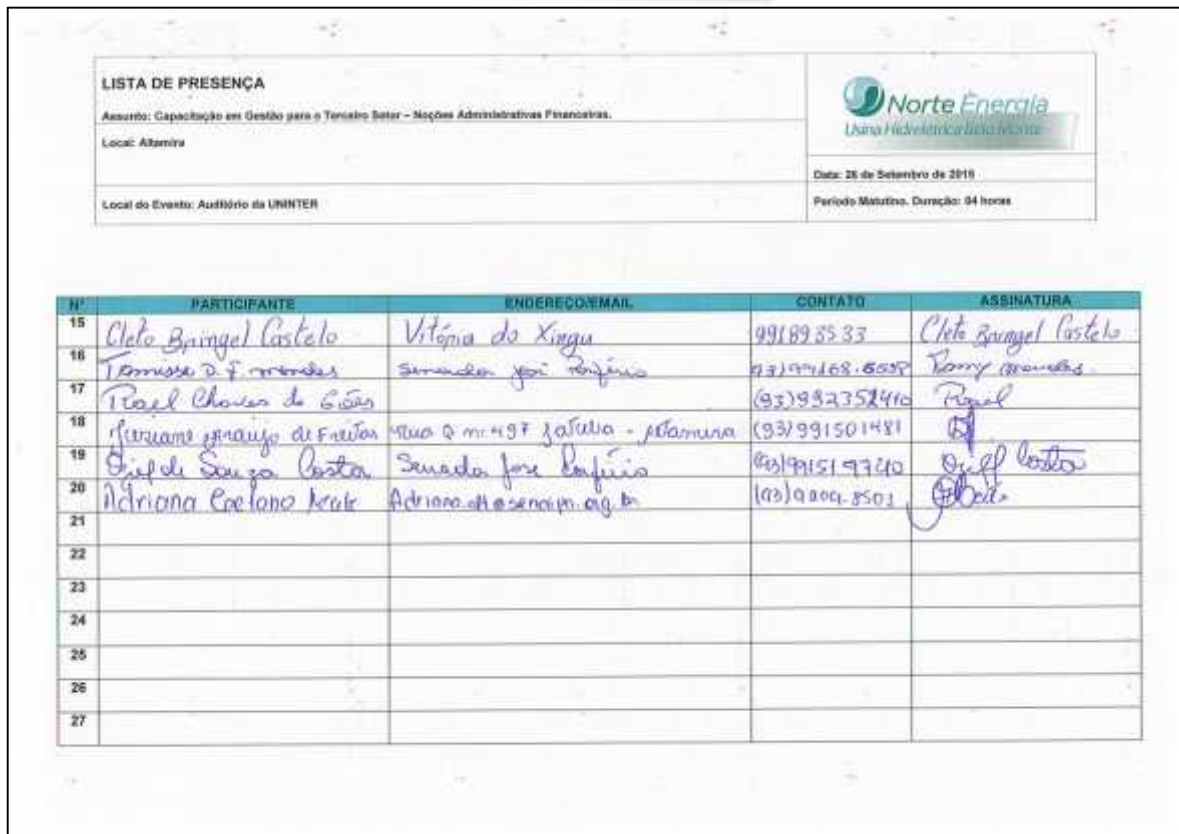 LISTA DE PRESENÇA
Assunto: Capacitação em Gestão para o Terceiro Setor – Noções Administrativas Financeiras.
Local: Altamira
Local do Evento: Auditório da UNINTER
Norte Energia
Usina Hidrelétrica Belo Monte
Data: 26 de Setembro de 2015
Período Matutino. Duração: 04 horas
Nº PARTICIPANTE ENDEREÇO/EMAIL CONTATO ASSINATURA
15 Cleto Bringel Castelo Vitória do Xingu 991893533 Cleto Bringel Castelo
16 D. F. mendes Senador josé Porfírio
17 Chaves de Góes (93)992352410
18 Araujo de Freitas Rua (93)991501481
19 de Souza Costa Senador jose Porfírio Costa
20 Adriana Caetano
21
22
23
24
25
26
27